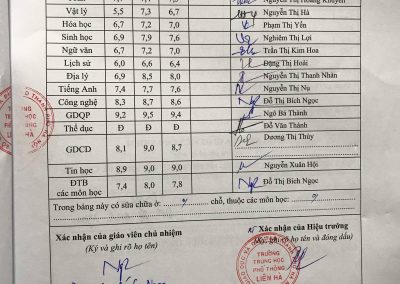 Vật lý 5,5 7,3 6,7 Nguyễn Thị Hà
Hóa học 6,7 7,2 7,0 Phạm Thị Yến
Sinh học 6,9 7,9 7,6 Nghiêm Thị Lợi
Ngữ văn 6,7 7,2 7,0 Trần Thị Kim Hoa
Lịch sử 6,0 6,6 6,4 Đặng Thị Hoài
Địa lý 6,9 8,5 8,0 Nguyễn Thị Thanh Nhàn
Tiếng Anh 7,4 7,7 7,6 Nguyễn Thị Nụ
Công nghệ 8,3 8,7 8,6 Đỗ Thị Bích Ngọc
GDQP 9,2 9,5 9,4 Ngô Bá Thành
Thể dục Đ Đ Đ Đỗ Văn Thành
GDCD 8,1 9,0 8,7 Dương Thị Thùy
Tin học 8,9 9,0 9,0 Nguyễn Xuân Hội
ĐTB
các môn học 7,4 8,0 7,8 Đỗ Thị Bích Ngọc
Trong bảng này có sửa chữa ở: chỗ, thuộc các môn học:
Xác nhận của giáo viên chủ nhiệm
(Ký và ghi rõ họ tên)
Xác nhận của Hiệu trưởng
họ tên và đóng dấu)
TRƯỜNG
TRUNG HỌC
PHỔ THÔNG
LIÊN HÀ